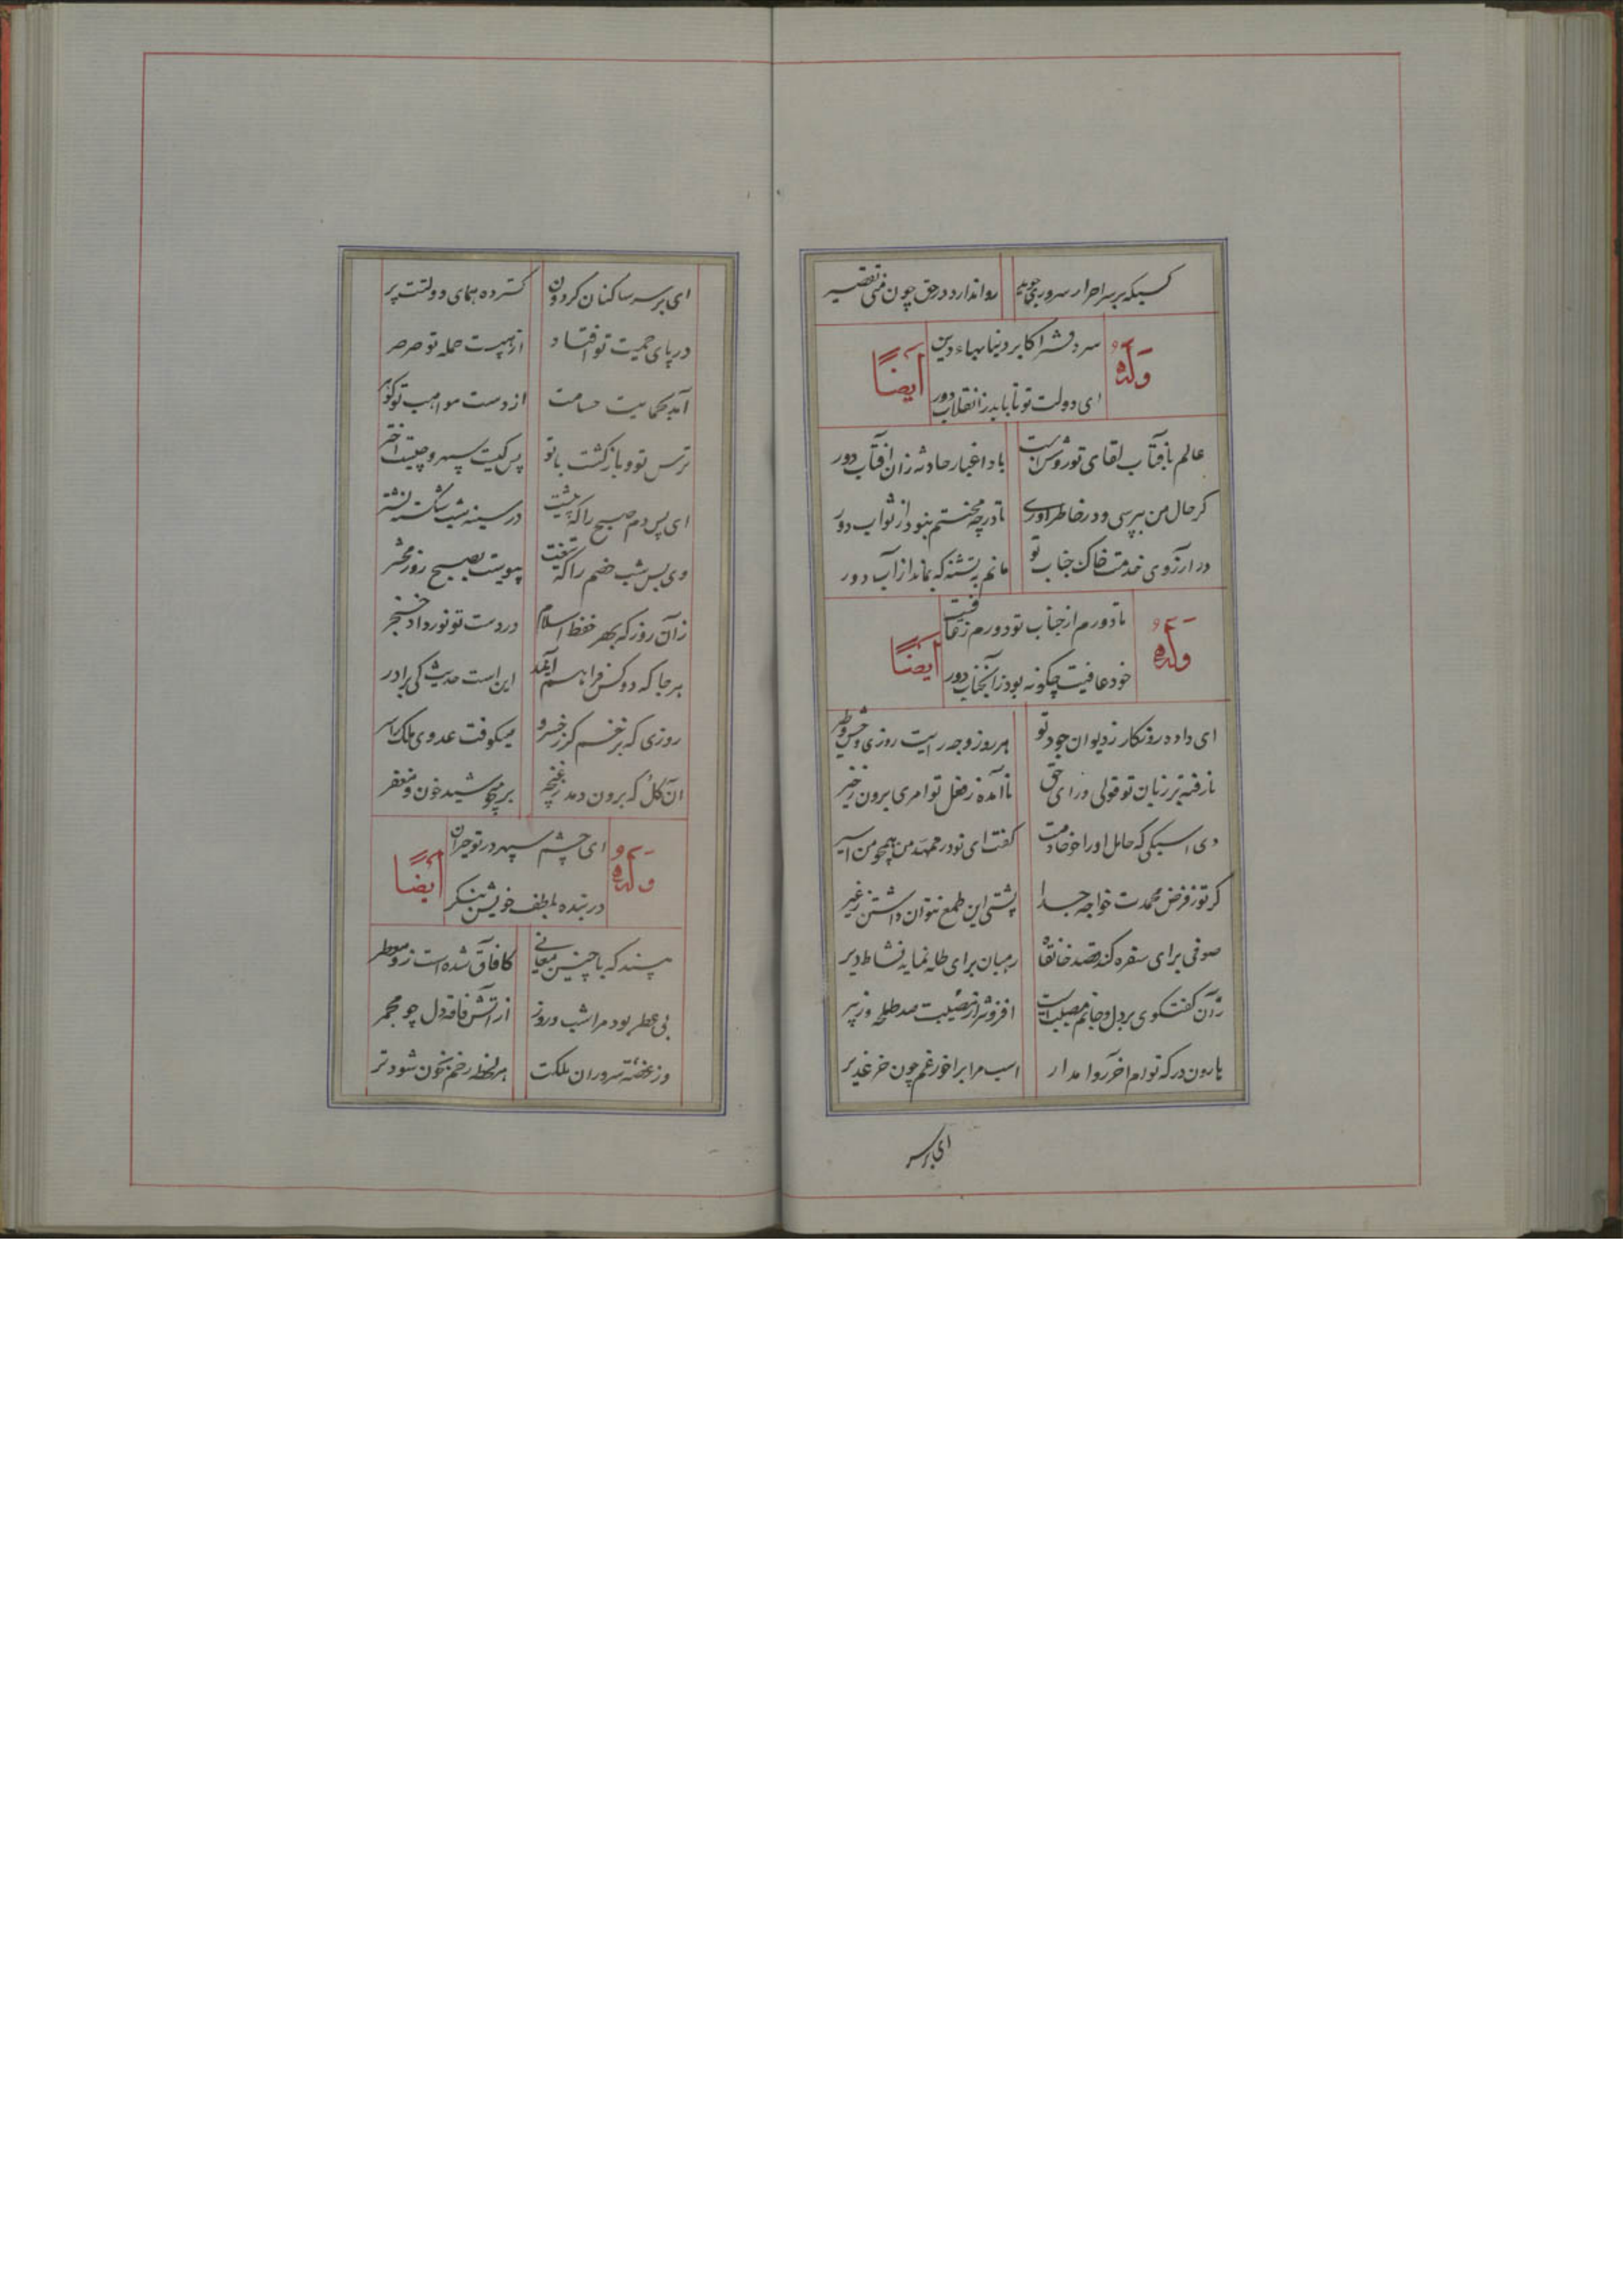 کسیکه بر سر احرار سروری جوید روا ندارد در حق چون منی تقصیر
وله ایضاً
سر دفتر اکابر دنیا بهاء دین
ای دولت تو تا بابد ز انقلاب دور
عالم بآفتاب لقای تو روشن است باد اغبار حادثه زان آفتاب دور
کر حال من بپرسی و در خاطر آوری نبود از ثواب دور
در آرزوی خدمت خاک جناب تو مانم به تشنه که بماند از آب دور
وله ایضاً
تا دورم از جناب تو دورم ز عافیت
خود عافیت چکونه بود زانجناب دور
ای داده روزکار ز دیوان جود تو هر روز وجه راتب روزی وحش و طیر
نارفته بر زبان تو قولی ورای حق ناآمده ز فعل تو امری برون ز خیر
دی اسبکی که حامل او را خود خادمت کفت ای تو در من همچو من اسیر
کر تو ز فرض محمدت خواجه پشتی این طمع نتوان داشتن ز غیر
صوفی برای سفره کند قصد خانقاه رهبان برای نماید نشاط دیر
زان کفتکوی بر دل و جانم مصیبت است افزونتر از مصیبت صد طلحه و زبیر
هارون درکه توام آخر روا مدار اسب مرا بر آخور غم چون خر عزیر
ای بر سر
ای بر سر ساکنان کردون کسترده همای دولتت پر
در پای حمیت تو افتاد از هیبت حمله تو صرصر
آمد حسامت از دست مواهب تو کوهر
ترس تو و بازکشت با تو پس کیست سپهر و چیست اختر
ای پس دم صبح را که پیشت در سینه شب شکست نشتر
وی بس شب خصم را که تیغت پیوست بصبح روز محشر
زان روز که بهر حفظ اسلام در دست تو نور داد خنجر
هر جا که دو کس فراهم آیند این است حدیث کی برادر
روزی که برغم کرز خسرو میکوفت عدوی ملک را سر
آن کل که برون دمد ز غنچه بر خون و مغفر
وله ایضاً
ای چشم سپهر در تو حیران
در بنده بلطف خویش بنکر
مپسند که با چنین معانی کافاق شده است زو معطر
بی عطر بود مرا شب و روز از آتش فاقه دل چو مجمر
وز غصه سروران ملکت هر لحظه رخم بخون شود تر